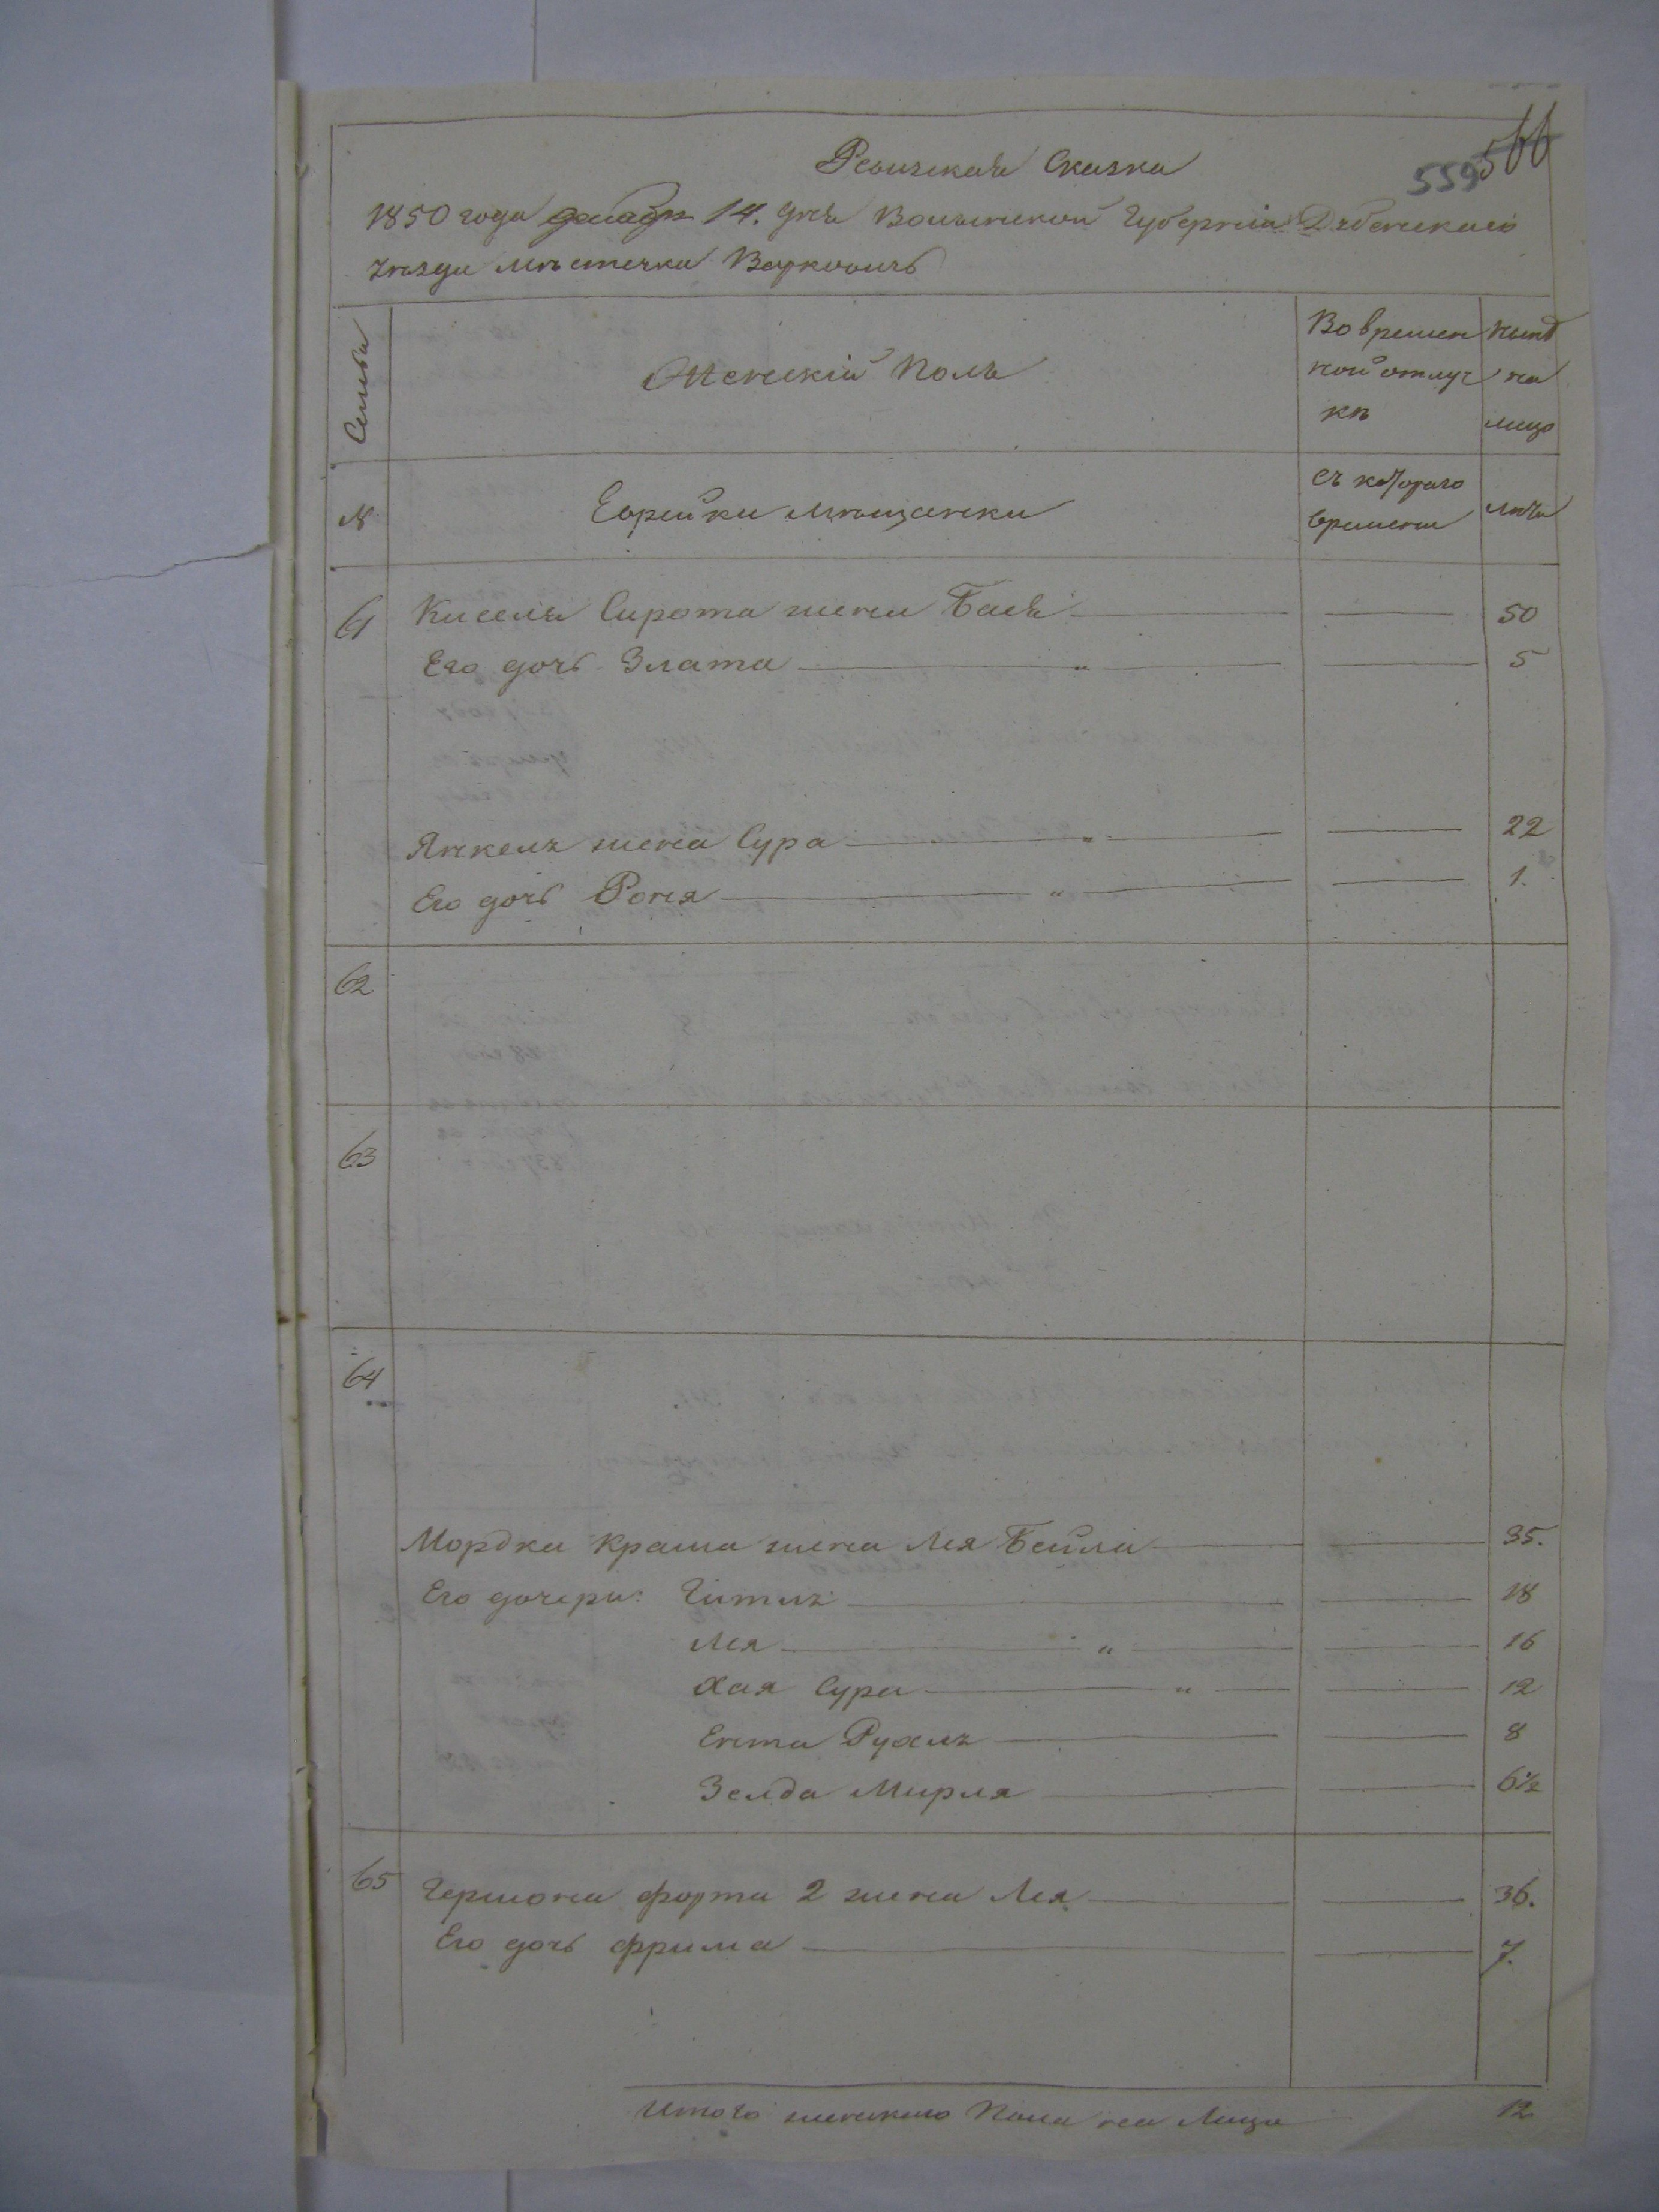 566
559
Ревизская Сказка
1850 года декабря 14. дня Волынской Губерніи Дубенскаго
уѣзда мѣстечка Варковичъ
Семьи
Женскій Полъ
Во времен
ной отлуч
кѣ
ныне
на
лицо
№
Еврейки мѣщанки
съ котораго
времени
лѣта
61 Киселя Сирота жена Бася 50
Его дочь Злата " 5
Янкеля жена Сура " 22
Его дочь Роня " 1.
62
63
64
Мордка Краша жена Лея Бейла 35.
Его дочери: Гитля 18
Лея " 16
Хая Сура " 12
Ента Рухля 8
Зелда Мирля 6½
65 Гершона форта 2 жена Лея 36.
Его дочь фрима 7.
Итого женскаго Пола на Лицо 12